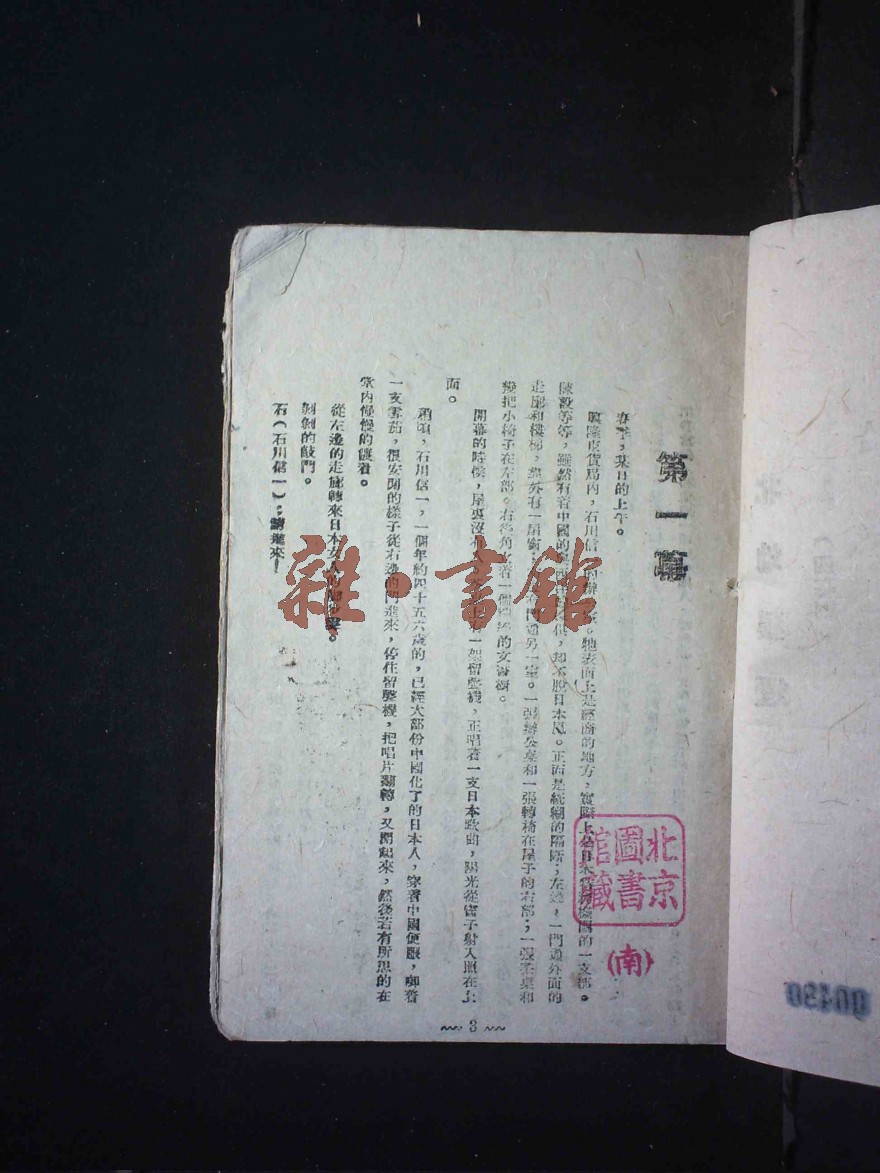 第一幕
春季，某日的上午。
興隆皮貨局內，石川信一的辦公室。牠表面上是經商的地方，實際上是日本特務機關的一支部。
陳設等等，雖然有着中國的，却不脫日本風。正面是紙糊的隔扇；左邊，一門通外面的
走廊和樓梯，門通另一室。一張辦公桌和一張轉椅在屋子的右部；一張茶桌和
幾把小椅子在左部。右後角立着一個的文書櫥。
開幕的時候，屋裏沒有一架留聲機，正唱着一支日本歌曲，陽光從窗子射入照在上
面。
稍頃，石川信一，一個年約四十五六歲的，已經大部份中國化了的日本人，穿着中國便服，啣着
一支雪茄，很安閒的樣子從右邊的門進來，停住留聲機，把唱片翻轉，又開起來，然後若有所思的在
室內慢慢的踱着。
從左邊的走廊轉來日本女人的聲。
剝剝的敲門。
石（石川信一）：請進來！
3
雜·書館
北京圖書館藏
（南）
00430